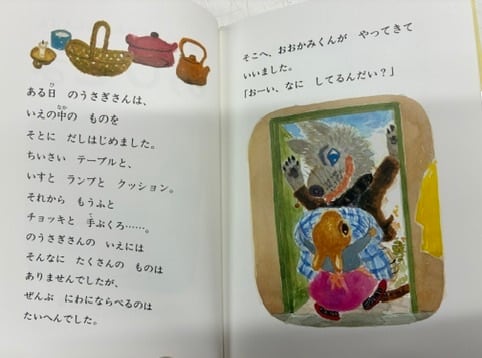 ある日 のうさぎさんは、
いえの中の ものを
そとに だしはじめました。
ちいさい テーブルと、
いすと ランプと クッション。
それから もうふと
チョッキと 手ぶくろ……。
のうさぎさんの いえには
そんなに たくさんの ものは
ありませんでしたが、
ぜんぶ にわにならべるのは
たいへんでした。
そこへ、おおかみくんが やってきて
いいました。
「おーい、なに してるんだい?」